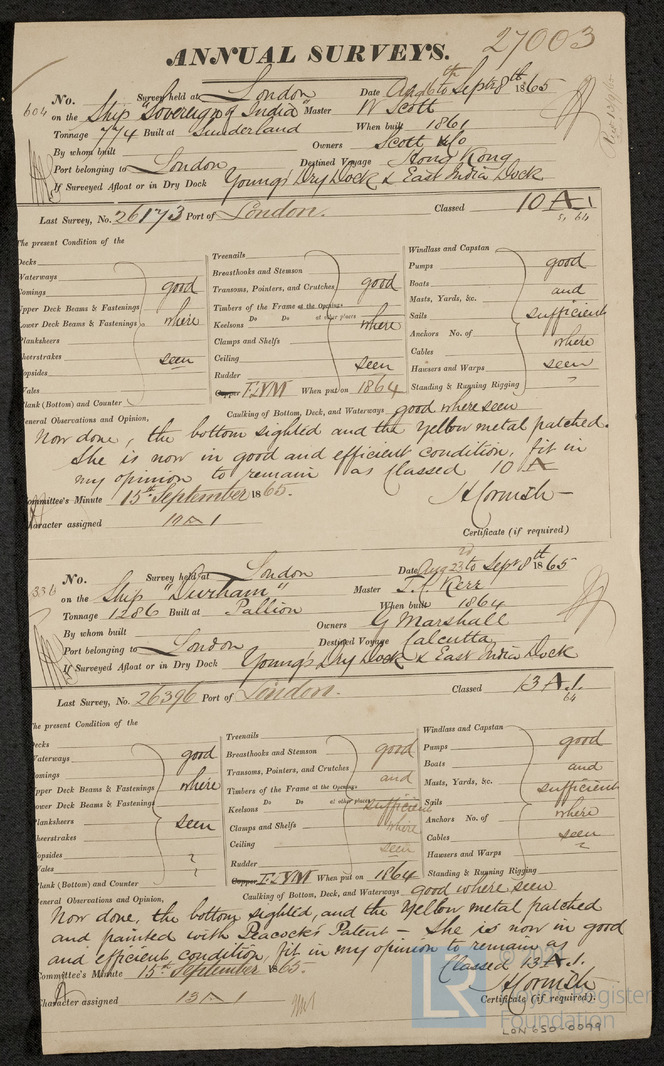 27003
ANNUAL SURVEYS.
604
No. Survey held at London Date Aug 16th to Sept 8th 1865
on the Ship "Sovereign of India" Master W Scott
Tonnage 774 Built at Sunderland When built 1861
By whom built Owners Scott & Co
Port belonging to London Destined Voyage Hong Kong
If Surveyed Afloat or in Dry Dock Young's Dry Dock & East India Dock
Last Survey, No. 26173 Port of London. Classed 10 A 1
5, 64
The present Condition of the
Decks
Waterways
Comings
Upper Deck Beams & Fastenings
Lower Deck Beams & Fastenings
Planksheers
Sheerstrakes
Topsides
Wales
Plank (Bottom) and Counter
good
where
seen
Treenails
Breasthooks and Stemson
Transoms, Pointers, and Crutches
Timbers of the Frame at the Openings
Do Do at other places
Keelsons
Clamps and Shelfs
Ceiling
Rudder
Copper FLYM When put on 1864
good
where
seen
Windlass and Capstan
Pumps
Boats
Masts, Yards, &c.
Sails
Anchors No. of
Cables
Hawsers and Warps
Standing & Running Rigging
good
and
sufficient
where
seen
General Observations and Opinion, Caulking of Bottom, Deck, and Waterways good where seen
Now done, the bottom sighted and the Yellow metal patched.
She is now in good and efficient condition, fit in
my opinion to remain as Classed 10 A
Committee's Minute 15th September 1865.
H Cornish
Character assigned 10 A 1
Certificate (if required)
336
No. Survey held at London Date Aug 23rd to Sept 8th 1865
on the Ship "Durham" Master T. C. Kerr
Tonnage 1286 Built at Pallion When built 1864
By whom built Owners G Marshall
Port belonging to London Destined Voyage Calcutta
If Surveyed Afloat or in Dry Dock Young's Dry Dock & East India Dock
Last Survey, No. 26396 Port of London. Classed 13 A.1.
64
The present Condition of the
Decks
Waterways
Comings
Upper Deck Beams & Fastenings
Lower Deck Beams & Fastenings
Planksheers
Sheerstrakes
Topsides
Wales
Plank (Bottom) and Counter
good
where
seen
Treenails
Breasthooks and Stemson
Transoms, Pointers, and Crutches
Timbers of the Frame at the Openings
Do Do at other places
Keelsons
Clamps and Shelfs
Ceiling
Rudder
Copper FLYM When put on 1864
good
and
sufficient
where
seen
Windlass and Capstan
Pumps
Boats
Masts, Yards, &c.
Sails
Anchors No. of
Cables
Hawsers and Warps
Standing & Running Rigging
good
and
sufficient
where
seen
General Observations and Opinion, Caulking of Bottom, Deck, and Waterways good where seen
Now done, the bottom sighted, and the Yellow metal patched
and painted with Peacock's Patent - She is now in good
and efficient condition, fit in my opinion to remain as
Classed 13 A.1.
Committee's Minute 15th September 1865.
H Cornish
Character assigned 13 A 1
Certificate (if required).
LR
Lloyd's Register
Foundation
LON650-0099